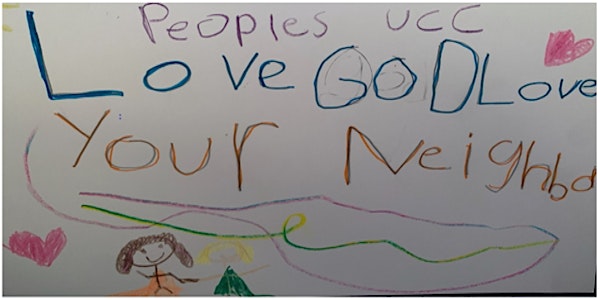 Peoples UCC
Love GOD Love
Your Neighbo